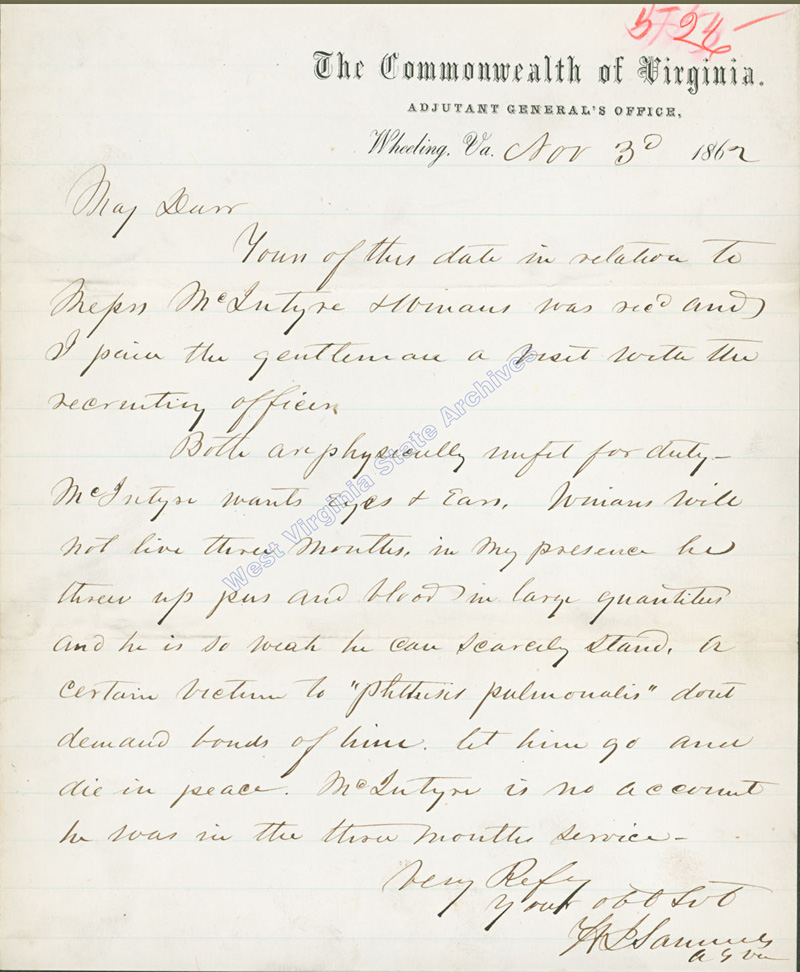 5724
The Commonwealth of Virginia.
ADJUTANT GENERAL'S OFFICE,
Wheeling, Va. Nov 3d 1862
Maj Darr
Yours of this date in relation to
Messrs McIntyre & Winans was recd and
I paid the gentleman a visit with the
recruiting officer
Both are physically unfit for duty—
McIntyre wants Eyes & Ears. Winans will
not live three months, in my presence he
threw up pus and blood in large quantities
and he is so weak he can scarcely stand. A
certain victim to "phthisis pulmonalis" dont
demand bonds of him. let him go and
die in peace. McIntyre is no account
he was in the three months service—
Very Resfy
Your obt Svt
H J Samuels
A G Va
West Virginia State Archives